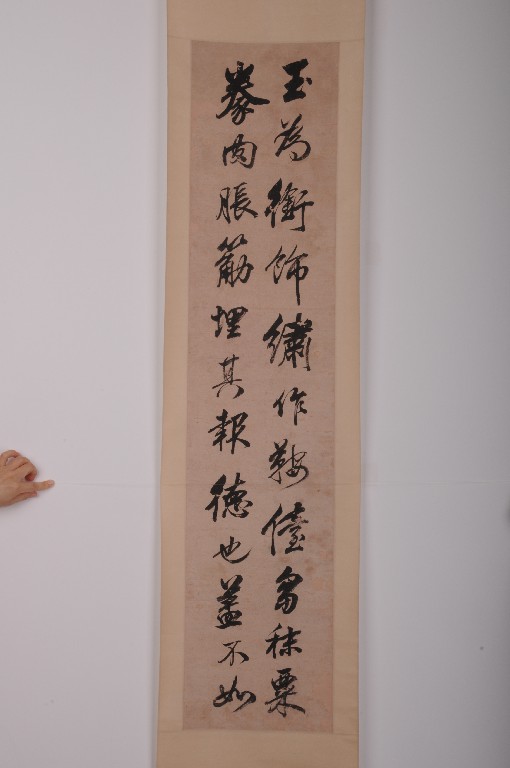 玉為銜飾繡作鞍儓芻秣粟
豢肉脹筋埋其報德也蓋不如